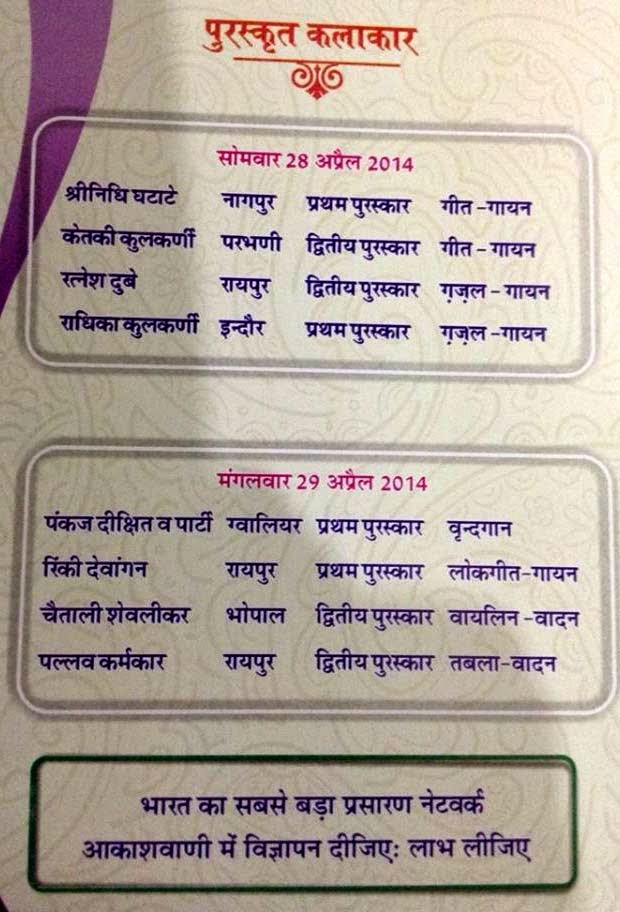 पुरस्कृत कलाकार
सोमवार 28 अप्रैल 2014
श्रीनिधि घटाटे नागपुर प्रथम पुरस्कार गीत -गायन
केतकी कुलकर्णी परभणी द्वितीय पुरस्कार गीत - गायन
रत्नेश दुबे रायपुर द्वितीय पुरस्कार ग़ज़ल - गायन
राधिका कुलकर्णी इन्दौर प्रथम पुरस्कार ग़ज़ल -गायन
मंगलवार 29 अप्रैल 2014
पंकज दीक्षित व पार्टी ग्वालियर प्रथम पुरस्कार वृन्दगान
रिंकी देवांगन रायपुर प्रथम पुरस्कार लोकगीत-गायन
चैताली शेवलीकर भोपाल द्वितीय पुरस्कार वायलिन -वादन
पल्लव कर्मकार रायपुर द्वितीय पुरस्कार तबला-वादन
भारत का सबसे बड़ा प्रसारण नेटवर्क
आकाशवाणी में विज्ञापन दीजिए: लाभ लीजिए